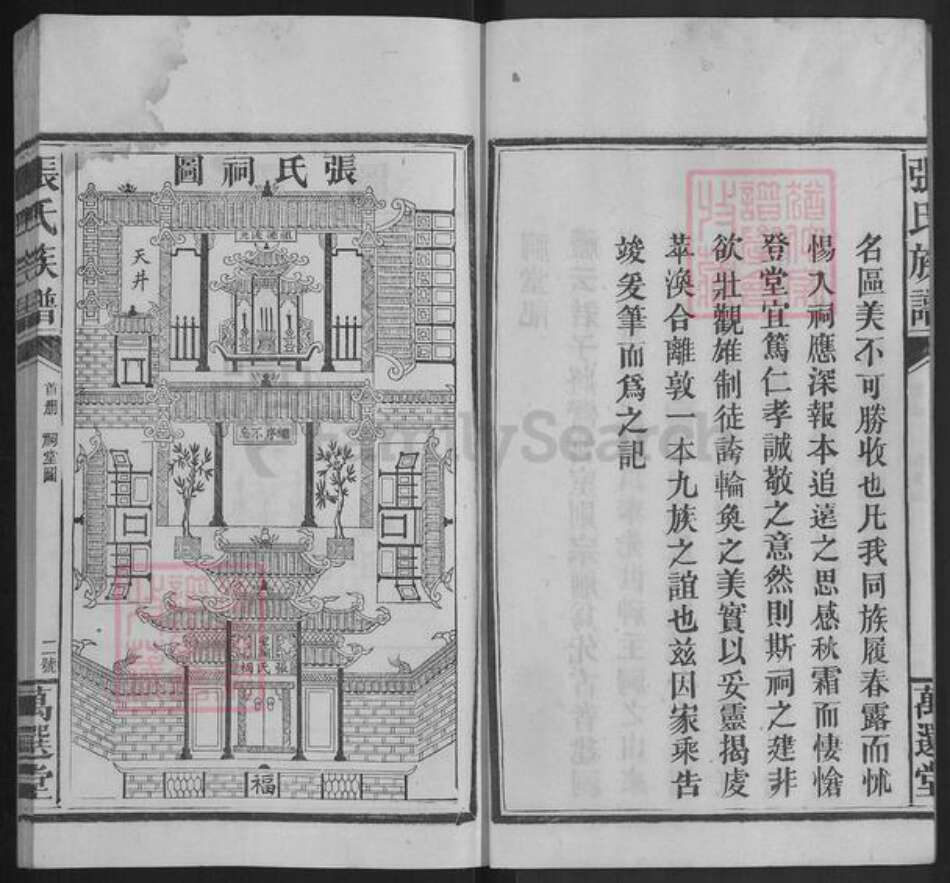 張氏族譜
萬選堂
名區美不可勝收也凡我同族履春露而怵
惕入祠應深報本追遠之思感秋霜而悽愴
登堂宜篤仁孝誠敬之意然則斯祠之建非
欲壯觀雄制徒誇輪奐之美實以妥靈揭虔
萃渙合離敦一本九族之誼也兹因家乘告
竣爰筆而爲之記
張氏祠圖
天井
張氏祠
福
張氏族譜
首册 祠堂圖
二號
萬選堂
FamilySearch